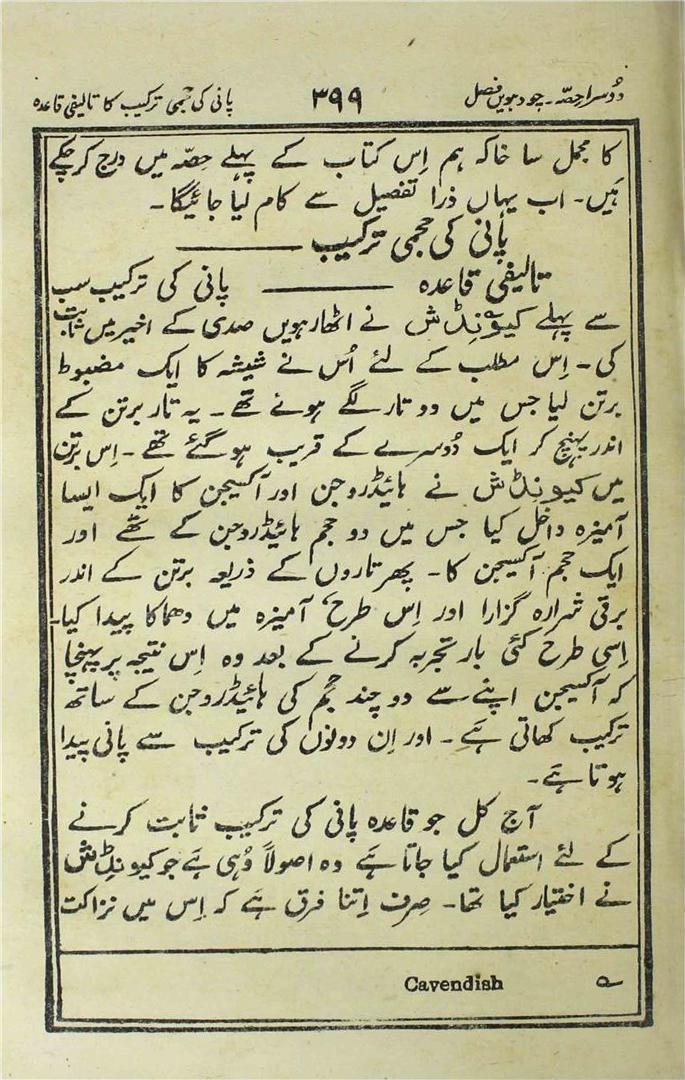 دُوسرا حصّہ ۔ چودہویں فصل ۳۹۹ پانی کی حجمی ترکیب کا تالیفی قاعدہ
کا مجمل سا خاکہ ہم اِس کتاب کے پہلے حصّہ میں درج کر چکے
ہَیں ۔ اب یہاں ذرا تفصیل سے کام لیا جائیگا ۔
پانی کی حجمی ترکیب ———
تالیفی قاعدہ ——— پانی کی ترکیب سب
سے پہلے کیونڈش نے اٹھارہویں صدی کے اخیر میں ثابت
کی ۔ اِس مطلب کے لئے اُس نے شیشہ کا ایک مضبوط
برتن لیا جس میں دو تار لگے ہوئے تھے ۔ یہ تار برتن کے
اندر پہنچ کر ایک دُوسرے کے قریب ہو گئے تھے ۔ اِس برتن
میں کیونڈش نے ہائیڈروجن اور آکسیجن کا ایک ایسا
آمیزہ داخل کیا جس میں دو حجم ہائیڈروجن کے تھے اور
ایک حجم آکسیجن کا ۔ پھر تاروں کے ذریعہ برتن کے اندر
برقی شرارہ گزارا اور اِس طرح، آمیزہ میں دھماکا پیدا کیا ۔
اِسی طرح کئی بار تجربہ کرنے کے بعد وہ اِس نتیجہ پر پہنچا
کہ آکسیجن اپنے سے دو چند حجم کی ہائیڈروجن کے ساتھ
ترکیب کھاتی ہَے ۔ اور اِن دونوں کی ترکیب سے پانی پیدا
ہوتا ہَے ۔
آج کل جو قاعدہ پانی کی ترکیب ثابت کرنے
کے لئے استعمال کیا جاتا ہَے وہ اصولاً وُہی ہَے جو کیونڈش
نے اختیار کیا تھا ۔ صِرف اِتنا فرق ہَے کہ اِس میں نزاکت
ے Cavendish